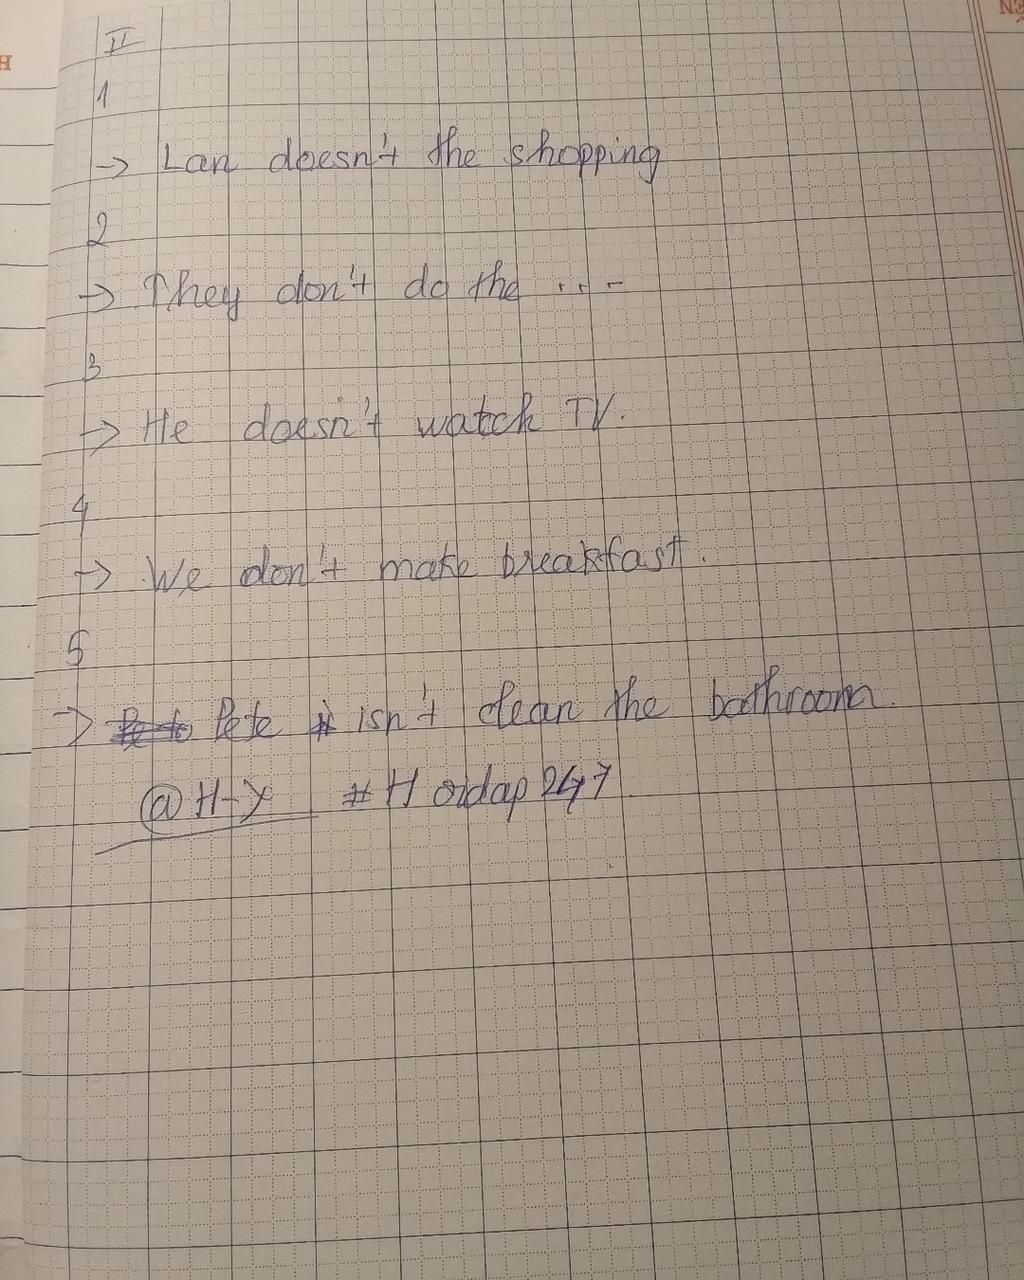 II
1
→ Lan doesn't the shopping
2
→ They don't do the ...-
3
→ He doesn't watch TV.
4
→ We don't make breakfast.
5
→ Pete isn't clean the bathroom.
@H-Y #Hoidap247